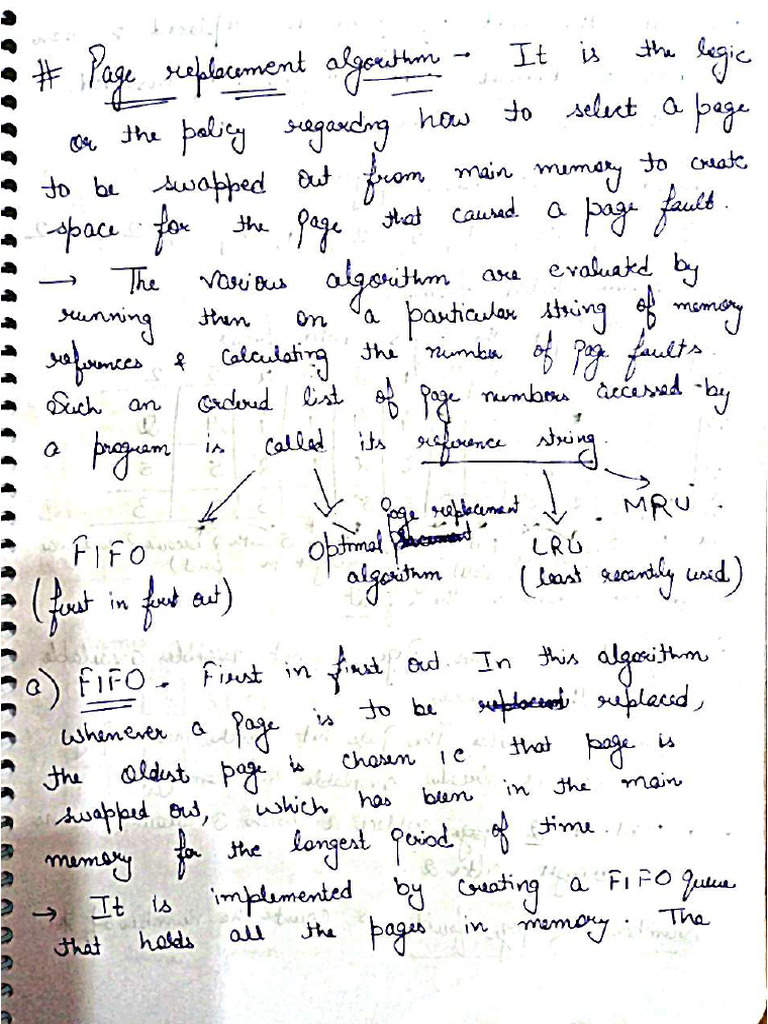 # Page replacement algorithm - It is the logic
or the policy regarding how to select a page
to be swapped out from main memory to create
space for the page that caused a page fault.
→ The various algorithm are evaluated by
running then on a particular string of memory
references & calculating the number of page faults.
Such an ordered list of page numbers accessed by
a program is called its reference string.
FIFO
(first in first out)
Optimal Page replacement
algorithm
LRU
(least recently used)
MRU
a) FIFO - First in first out. In this algorithm
whenever a page is to be replaced,
the oldest page is chosen ie that page is
swapped out, which has been in the main
memory for the longest period of time.
→ It is implemented by creating a FIFO queue
that holds all the pages in memory. The